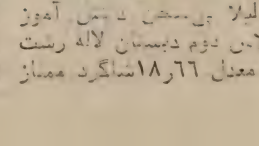 لیلا دانش آموز
کلاس دوم دبستان لاله رشت
معدل ۱۸٫۶۶ شاگرد ممتاز